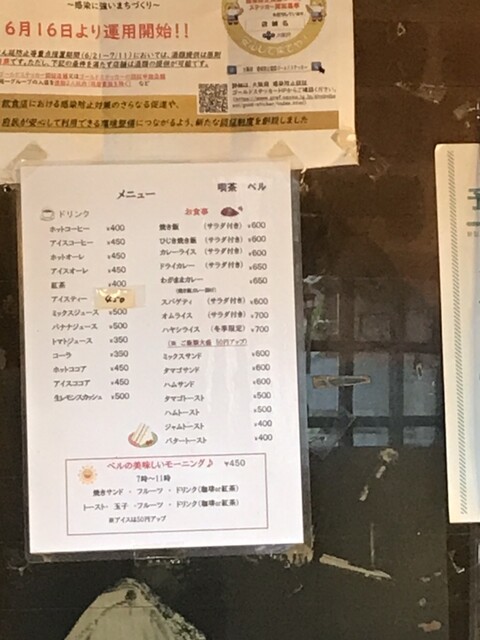 ～感染に強いまちづくり～
6月16日より運用開始!!
飲食店における感染防止対策のさらなる促進や、
府民が安心して利用できる環境整備につながるよう、新たな認証制度を創設しました
メニュー
喫茶 ベル
ドリンク
ホットコーヒー ¥400
アイスコーヒー ¥450
ホットオーレ ¥450
アイスオーレ ¥450
紅茶 ¥400
アイスティー 450
ミックスジュース ¥500
バナナジュース ¥500
トマトジュース ¥350
コーラ ¥350
ホットココア ¥450
アイスココア ¥450
生レモンスカッシュ ¥500
お食事
焼き飯 (サラダ付き) ¥600
ひじき焼き飯 (サラダ付き) ¥600
カレーライス (サラダ付き) ¥600
ドライカレー (サラダ付き) ¥650
わがままカレー ¥650
スパゲティ (サラダ付き) ¥600
オムライス (サラダ付き) ¥700
ハヤシライス (冬季限定) ¥700
ご飯類大盛 50円アップ)
ミックスサンド ¥600
タマゴサンド ¥600
ハムサンド ¥600
タマゴトースト ¥500
ハムトースト ¥500
ジャムトースト ¥400
バタートースト ¥400
ベルの美味しいモーニング♪ ¥450
7時～11時
焼きサンド ・ フルーツ ・ ドリンク(珈琲or紅茶)
トースト・ 玉子 ・フルーツ ・ ドリンク(珈琲or紅茶)
※アイスは50円アップ